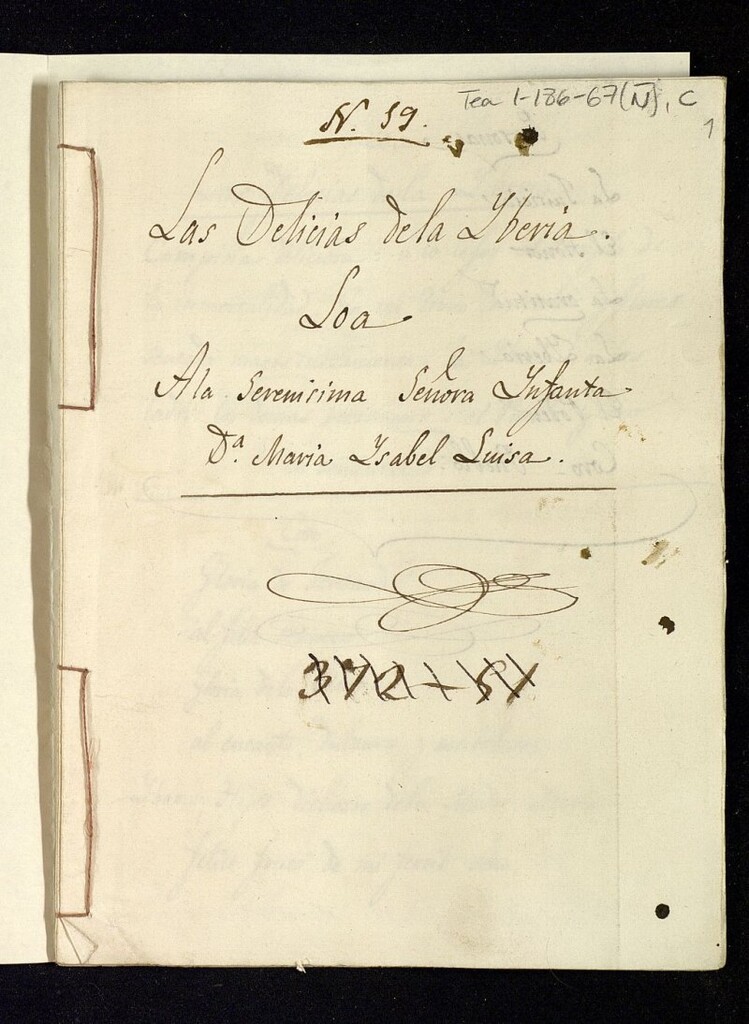 Tea 1-186-67(N), C
1
N. 59.
Las Delicias dela Yberia.
Loa
Ala Serenisima Señora Ynfanta
Dª. Maria Ysabel Luisa.